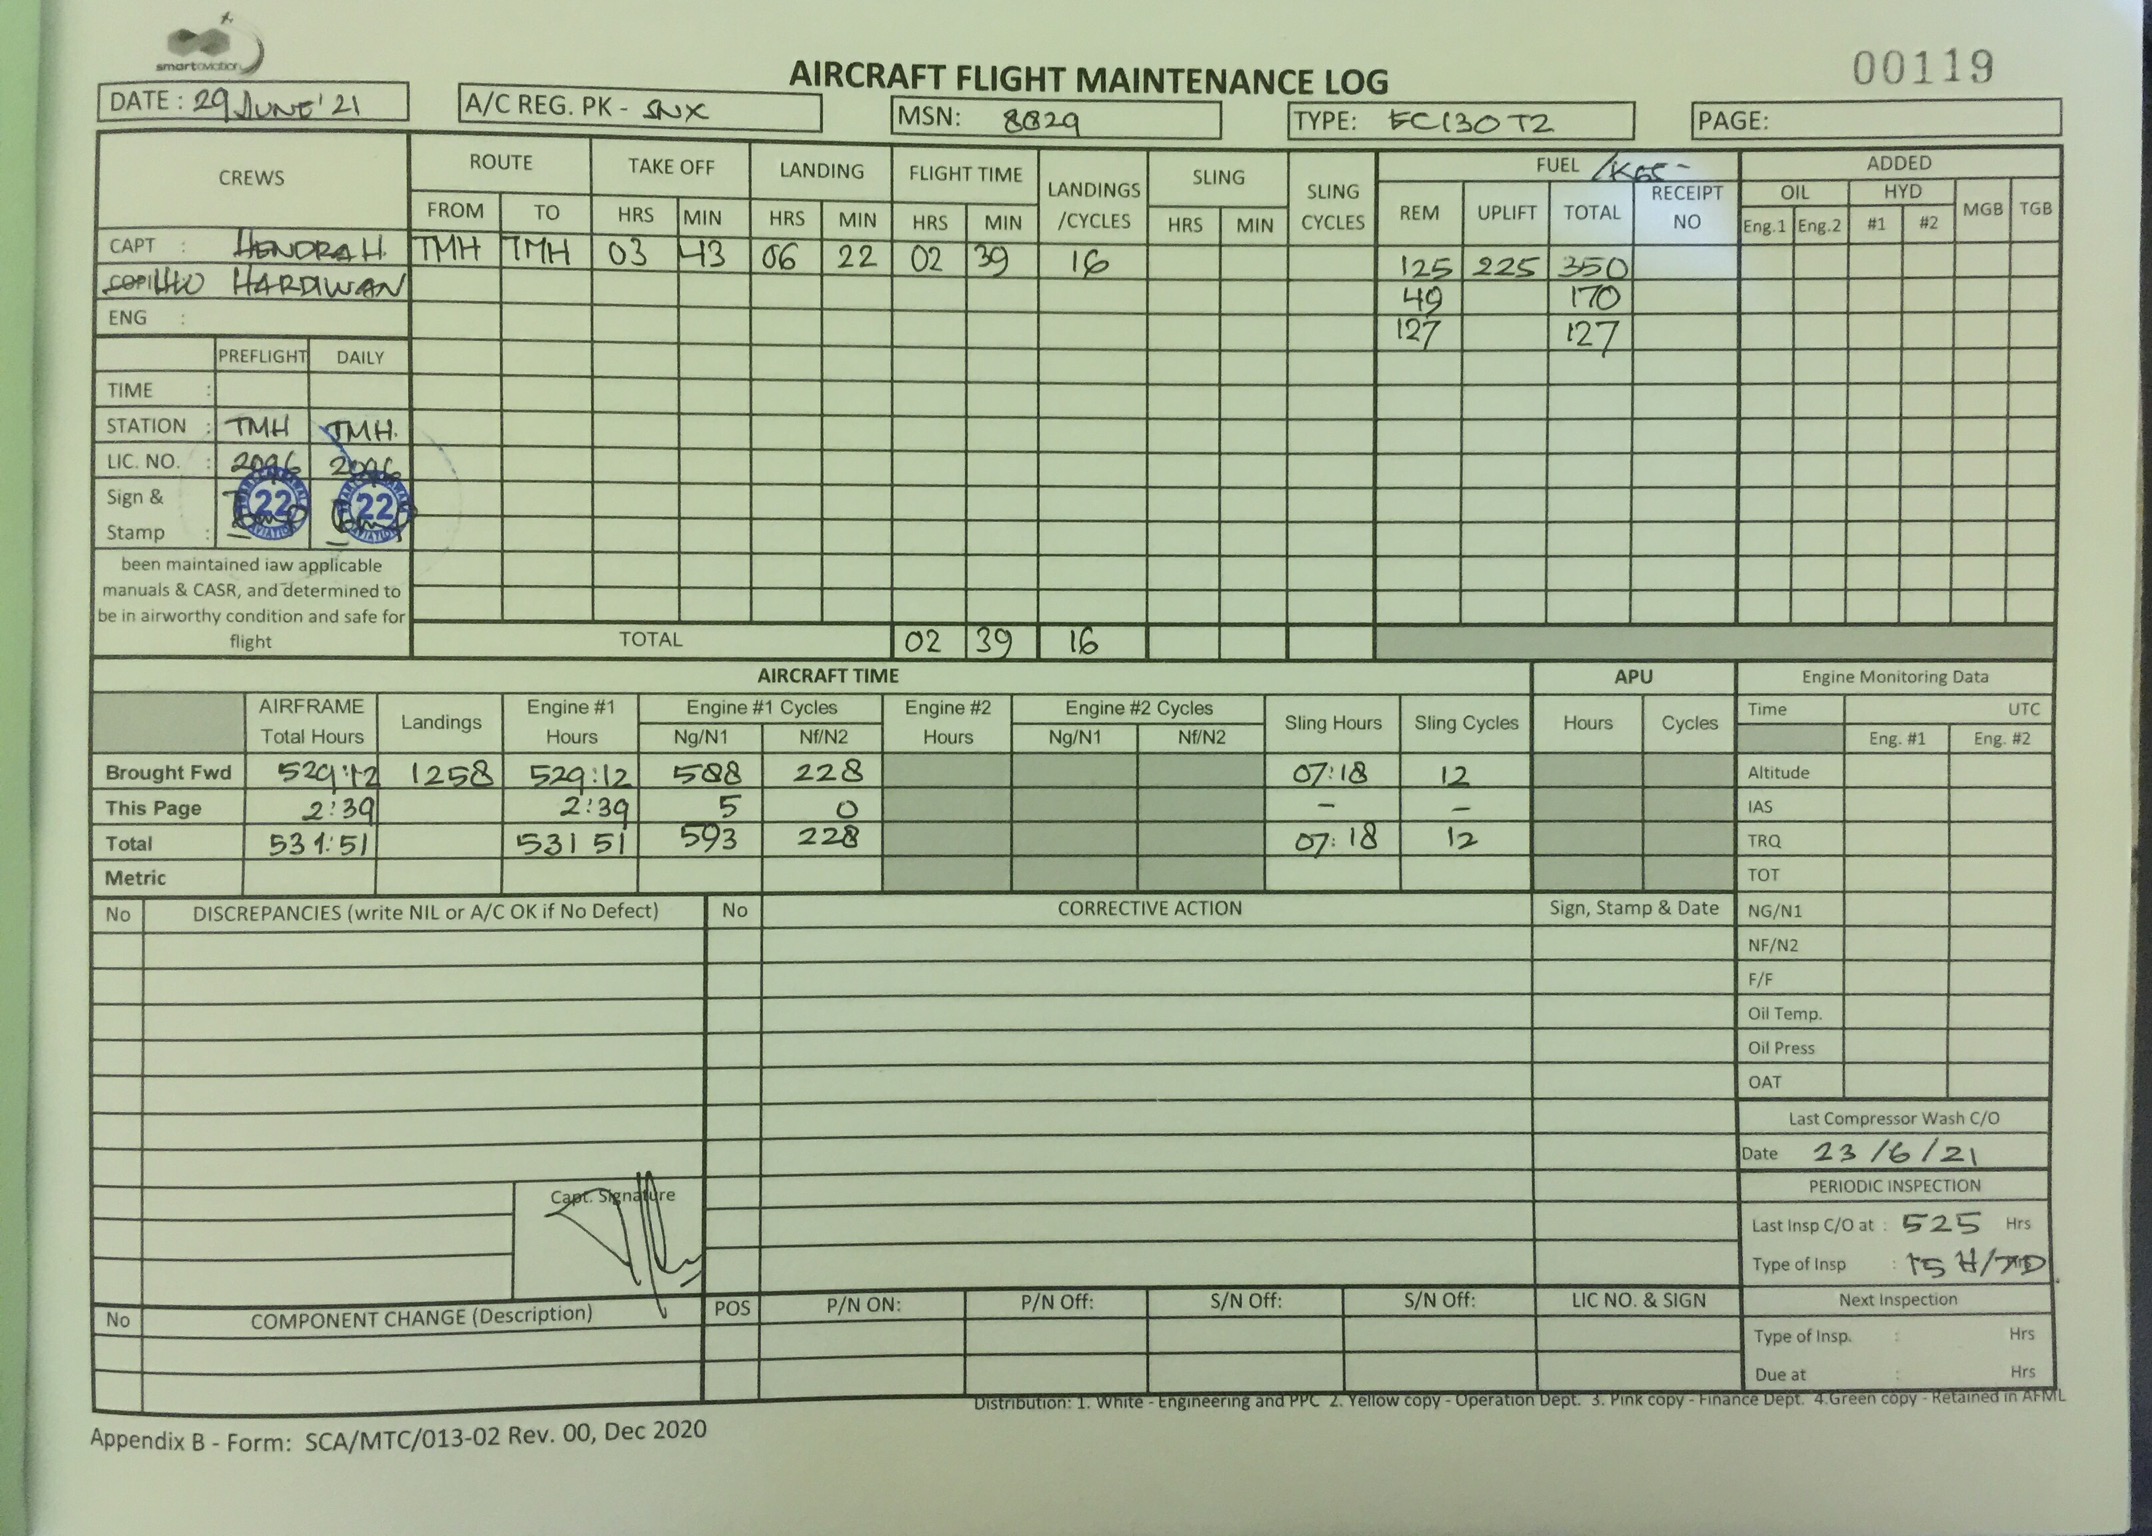 smartaviation
AIRCRAFT FLIGHT MAINTENANCE LOG
00119
DATE : 29 JUNE '21
A/C REG. PK - SNX
MSN: 8829
TYPE: EC130T2
PAGE:
CREWS
ROUTE TAKE OFF LANDING FLIGHT TIME LANDINGS /CYCLES SLING SLING CYCLES FUEL /KGS - ADDED
FROM TO HRS MIN HRS MIN HRS MIN HRS MIN REM UPLIFT TOTAL RECEIPT NO OIL HYD MGB TGB
Eng.1 Eng.2 #1 #2
CAPT : HENDRA H. TMH TMH 03 43 06 22 02 39 16 125 225 350
HARDIWAN 49 170
ENG : 127 127
PREFLIGHT DAILY
TIME :
STATION : TMH TMH.
LIC. NO. : 2096 2096
Sign &
Stamp : 22 22
been maintained iaw applicable
manuals & CASR, and determined to
be in airworthy condition and safe for
flight
TOTAL 02 39 16
AIRCRAFT TIME APU Engine Monitoring Data
AIRFRAME Total Hours Landings Engine #1 Hours Engine #1 Cycles Engine #2 Hours Engine #2 Cycles Sling Hours Sling Cycles Hours Cycles Time UTC
Ng/N1 Nf/N2 Ng/N1 Nf/N2 Eng. #1 Eng. #2
Brought Fwd 529:12 1258 529:12 588 228 07:18 12 Altitude
This Page 2:39 2:39 5 0 - - IAS
Total 531:51 531 51 593 228 07:18 12 TRQ
Metric TOT
No DISCREPANCIES (write NIL or A/C OK if No Defect) No CORRECTIVE ACTION Sign, Stamp & Date NG/N1
NF/N2
F/F
Oil Temp.
Oil Press
OAT
Last Compressor Wash C/O
Date 23/6/21
Capt. Signature
PERIODIC INSPECTION
Last Insp C/O at : 525 Hrs
Type of Insp : 15 H/7D
No COMPONENT CHANGE (Description) POS P/N ON: P/N Off: S/N Off: S/N Off: LIC NO. & SIGN Next Inspection
Type of Insp. : Hrs
Due at : Hrs
Distribution: 1. White - Engineering and PPC 2. Yellow copy - Operation Dept. 3. Pink copy - Finance Dept. 4.Green copy - Retained in AFML
Appendix B - Form: SCA/MTC/013-02 Rev. 00, Dec 2020